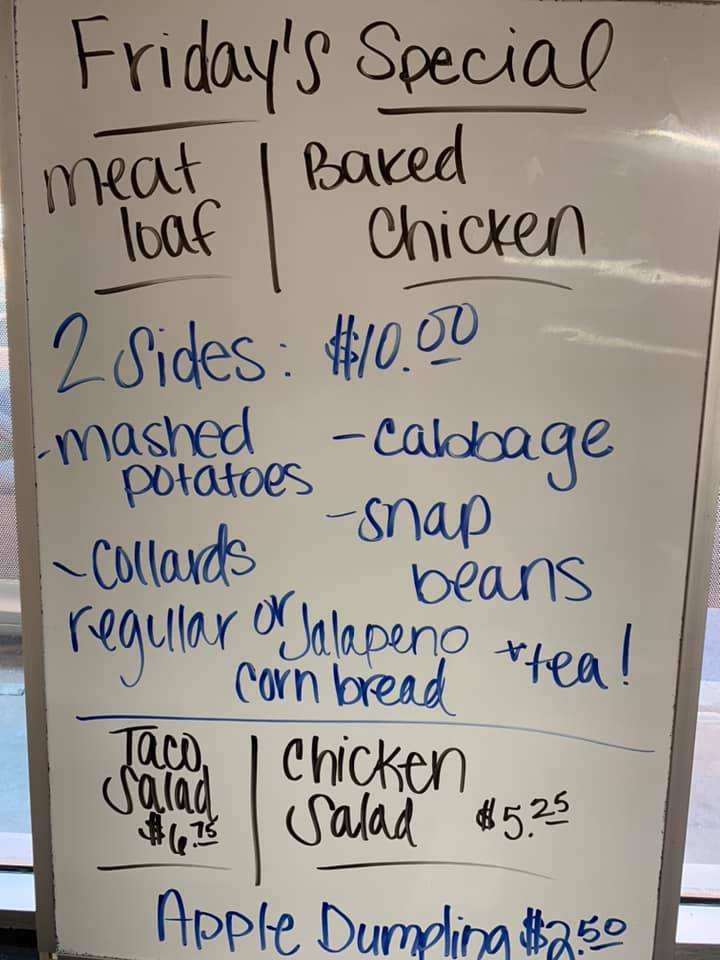 Friday's Special
meat loaf | Baked Chicken
2 Sides: $10.00
-mashed potatoes
-cabbage
-collards
-snap beans
regular or Jalapeno corn bread + tea!
Taco Salad $6.75 | Chicken Salad $5.25
Apple Dumpling $2.50